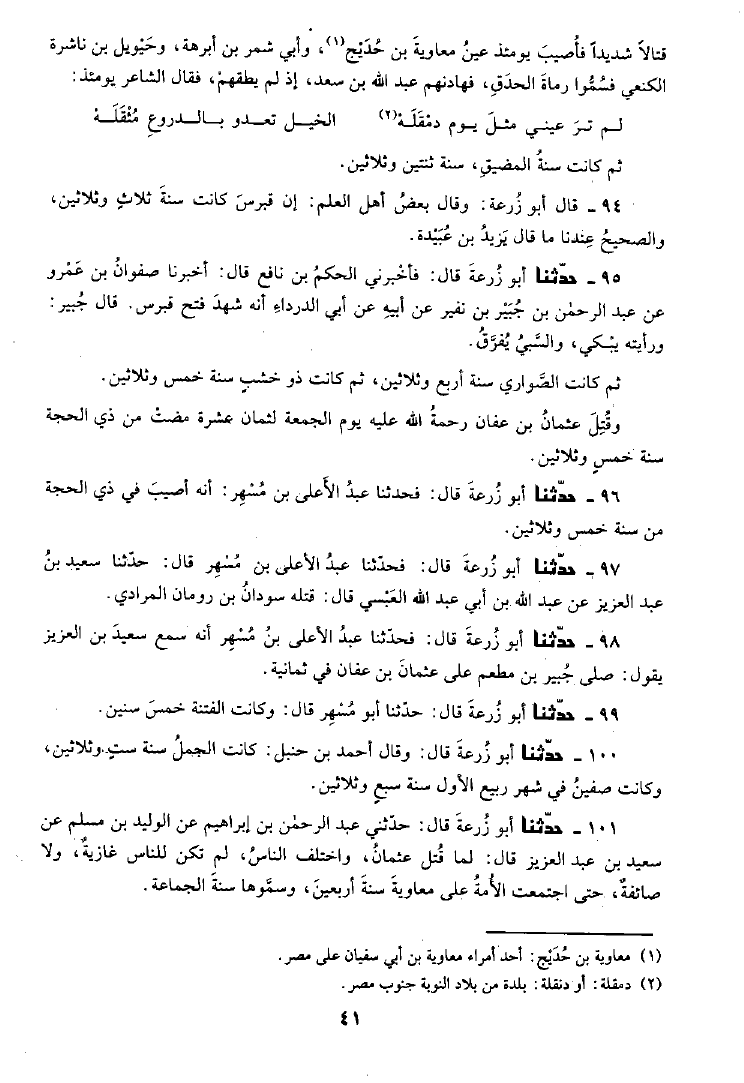 قتالاً شديداً فأُصيبَ يومئذ عينُ معاوية بن حُدَيْج(١)، وأبي شمر بن أبرهة، وحَيْويل بن ناشرة
الكنعي فسُمُّوا رماةَ الحدَقِ، فهادنهم عبد الله بن سعد، إذ لم يطقهمْ، فقال الشاعر يومئذ:
لـم تـرَ عينـي مثـلَ يـوم دمْقلَـهْ(٢) الخيـل تعـدو بـالـدروعِ مُثْقَلَـهْ
ثم كانت سنةُ المضيقِ، سنة ثنتين وثلاثين.
٩٤ ـ قال أبو زُرعة: وقال بعضُ أهل العلم: إن قبرسَ كانت سنةَ ثلاثٍ وثلاثين،
والصحيحُ عِندنا ما قال يَزيدُ بن عُبَيْدة.
٩٥ ـ حدّثنا أبو زُرعةَ قال: فأخْبرني الحكمُ بن نافع قال: أخبرنا صفوانُ بن عَمْرو
عن عبد الرحمٰن بن جُبَيْر بن نفير عن أبيهِ عن أبي الدرداءِ أنه شهدَ فتح قبرس. قال جُبير:
ورأيته يبْكي، والسَّبيُ يُفرَّقُ.
ثم كانت الصَّواري سنة أربع وثلاثين، ثم كانت ذو خشبٍ سنة خمس وثلاثين.
وقُتِلَ عثمانُ بن عفان رحمةُ الله عليه يوم الجمعة لثمان عشرة مضتْ من ذي الحجة
سنة خمسٍ وثلاثين.
٩٦ ـ حدّثنا أبو زُرعةَ قال: فحدثنا عبدُ الأَعلى بن مُسْهِر: أنه أصيبَ في ذي الحجة
من سنة خمس وثلاثين.
٩٧ ـ حدّثنا أبو زُرعةَ قال: فحدّثنا عبدُ الأعلى بن مُسْهِر قال: حدّثنا سعيد بنُ
عبد العزيز عن عبد الله بن أبي عبد الله العَبْسي قال: قتله سودانُ بن رومان المرادي.
٩٨ ـ حدّثنا أبو زُرعةَ قال: فحدّثنا عبدُ الأعلى بنُ مُسْهِر أنه سمع سعيدَ بن العزيز
يقول: صلى جُبير بن مطعم على عثمانَ بن عفان في ثمانية.
٩٩ ـ حدّثنا أبو زُرعةَ قال: حدّثنا أبو مُسْهِر قال: وكانت الفتنة خمسَ سنين.
١٠٠ ـ حدّثنا أبو زُرعةَ قال: وقال أحمد بن حنبل: كانت الجملُ سنة ستٍ وثلاثين،
وكانت صفينُ في شهر ربيع الأول سنة سبعٍ وثلاثين.
١٠١ ـ حدّثنا أبو زُرعةَ قال: حدّثني عبد الرحمٰن بن إبراهيم عن الوليد بن مسلم عن
سعيد بن عبد العزيز قال: لما قُتل عثمانُ، واختلف الناسُ، لم تكن للناس غازيةٌ، ولا
صائفةٌ، حتى اجتمعت الأمةُ على معاوية سنةَ أربعينَ، وسمَّوها سنةَ الجماعة.
(١) معاوية بن حُدَيْج: أحد أمراء معاوية بن أبي سفيان على مصر.
(٢) دمقلة: أو دنقلة: بلدة من بلاد النوبة جنوب مصر.
٤١